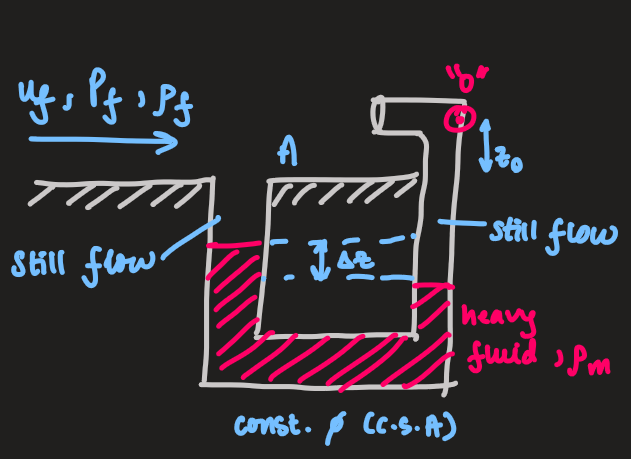 "o"
u_f, P_f, ρ_f
A
z₀
still flow
still flow
Δz
heavy
fluid, ρ_m
const. ϕ (C.S.A)